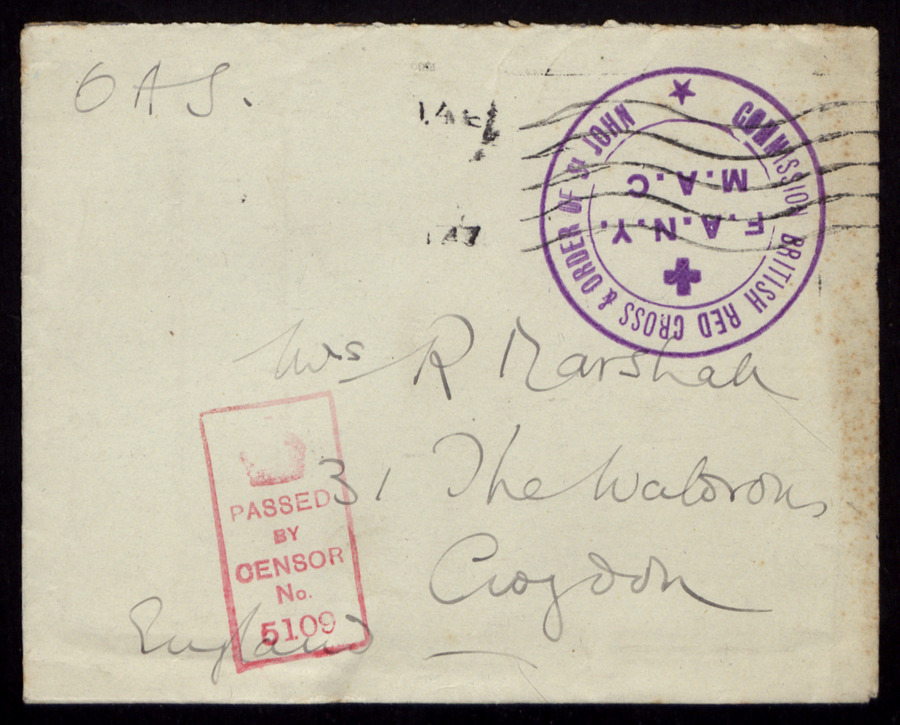 OAS.
COMMISSION BRITISH RED CROSS & ORDER OF St JOHN
F.A.N.Y.
M.A.C
Mrs R Marshall
31 The Waldrons
Croydon
England
PASSED
BY
CENSOR
No.
5109